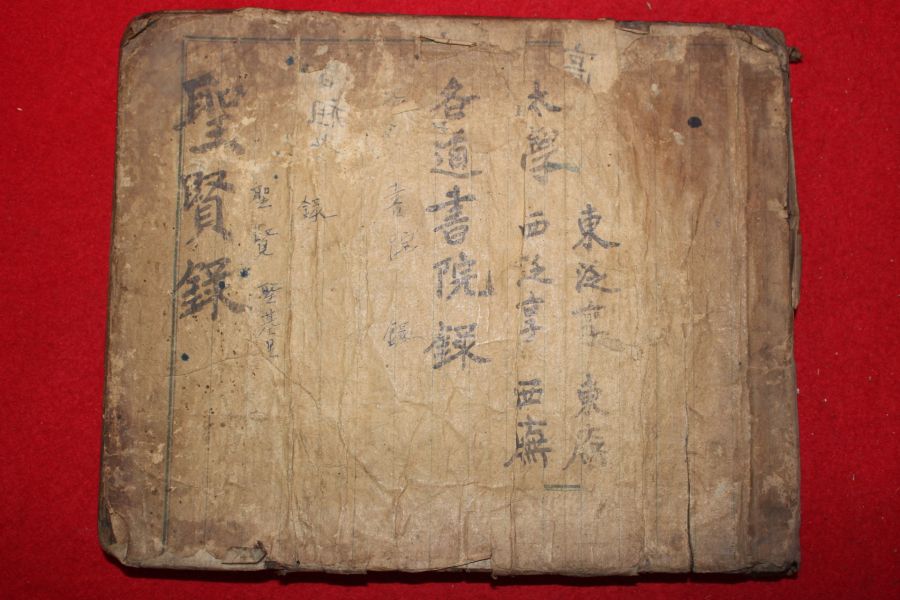 東従享 東廡
太學 西従享 西廡
各道書院錄
書院錄
錄
聖賢 聖
聖賢錄